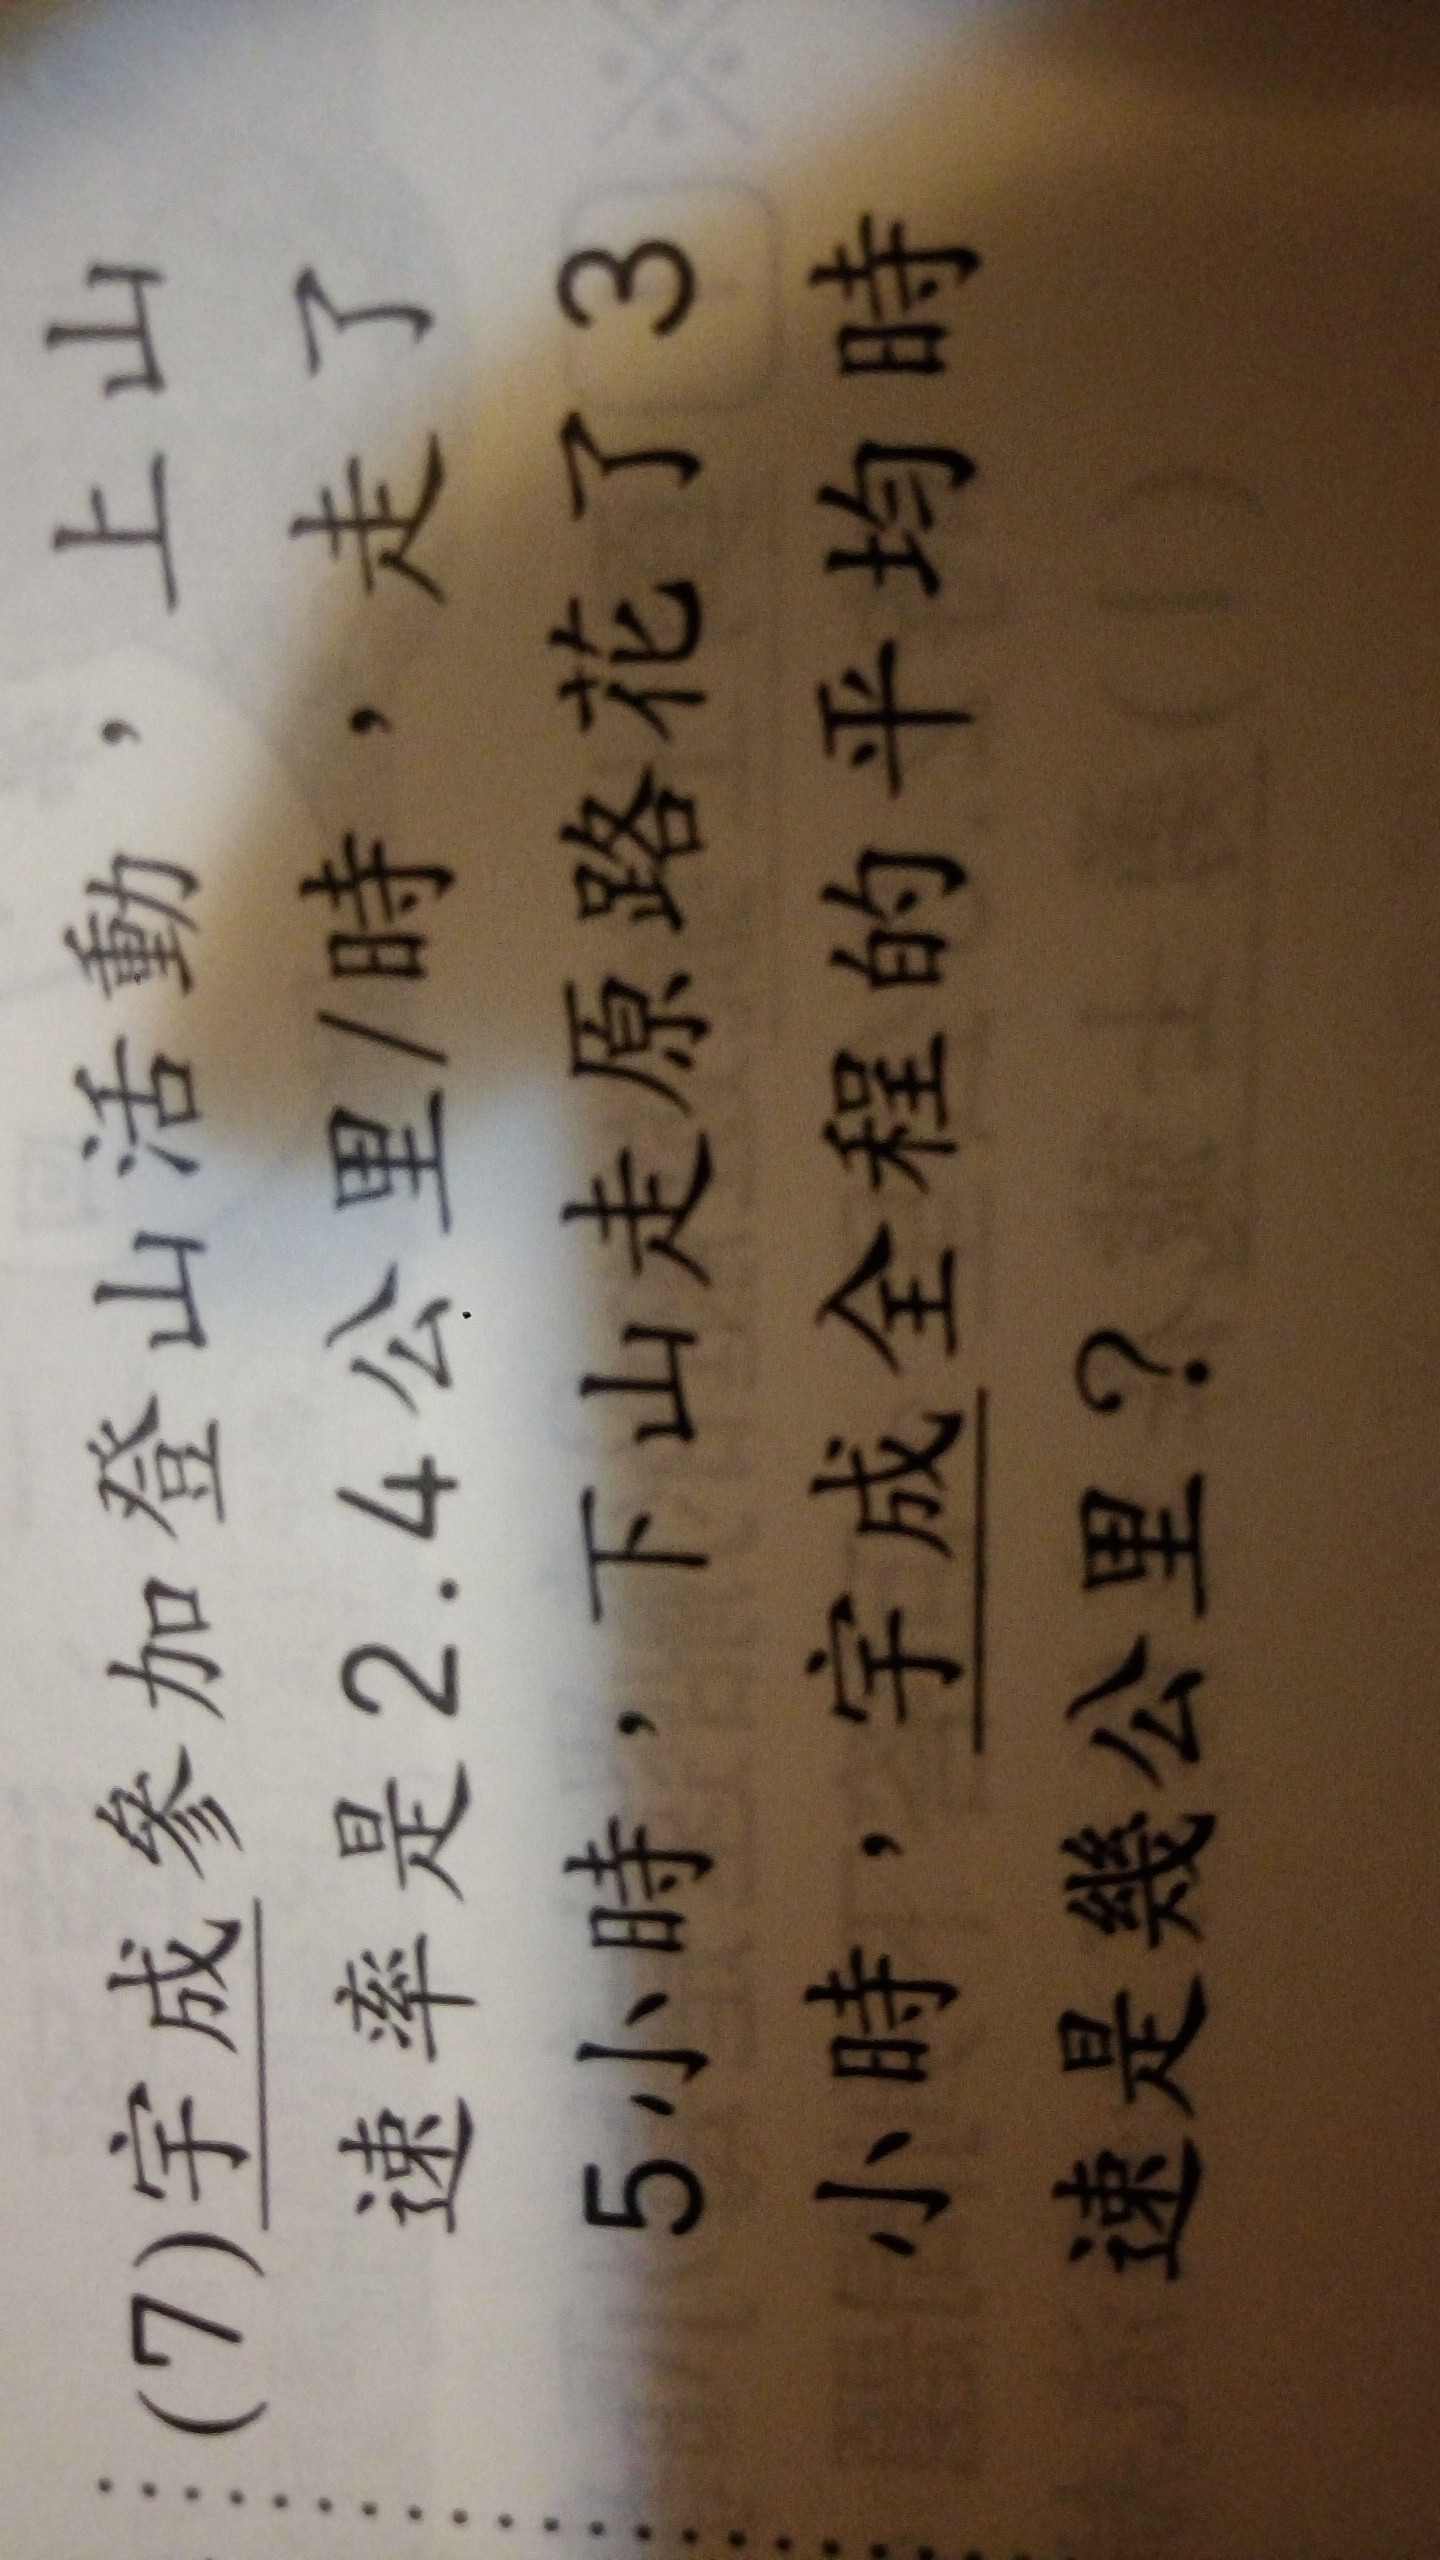 (7)宇成參加登山活動，上山
速率是2.4公里/時，走了
5小時，下山走原路花了3
小時，宇成全程的平均時
速是幾公里？